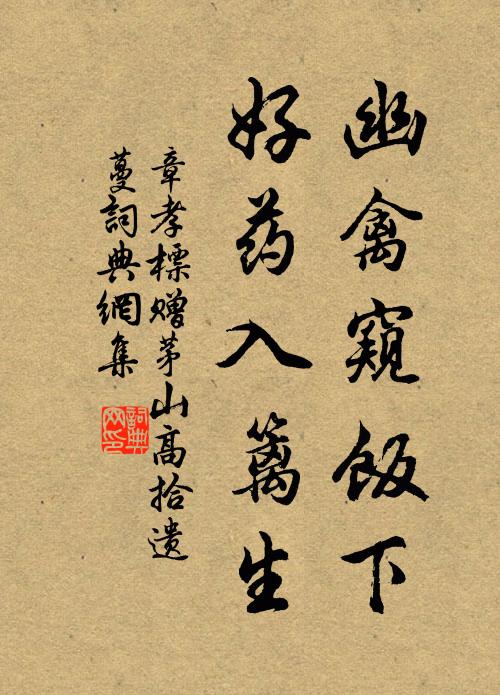 幽禽窺飯下
好药入籬生
章孝標贈茅山高拾遺
蔓詞典網集
詞典网印